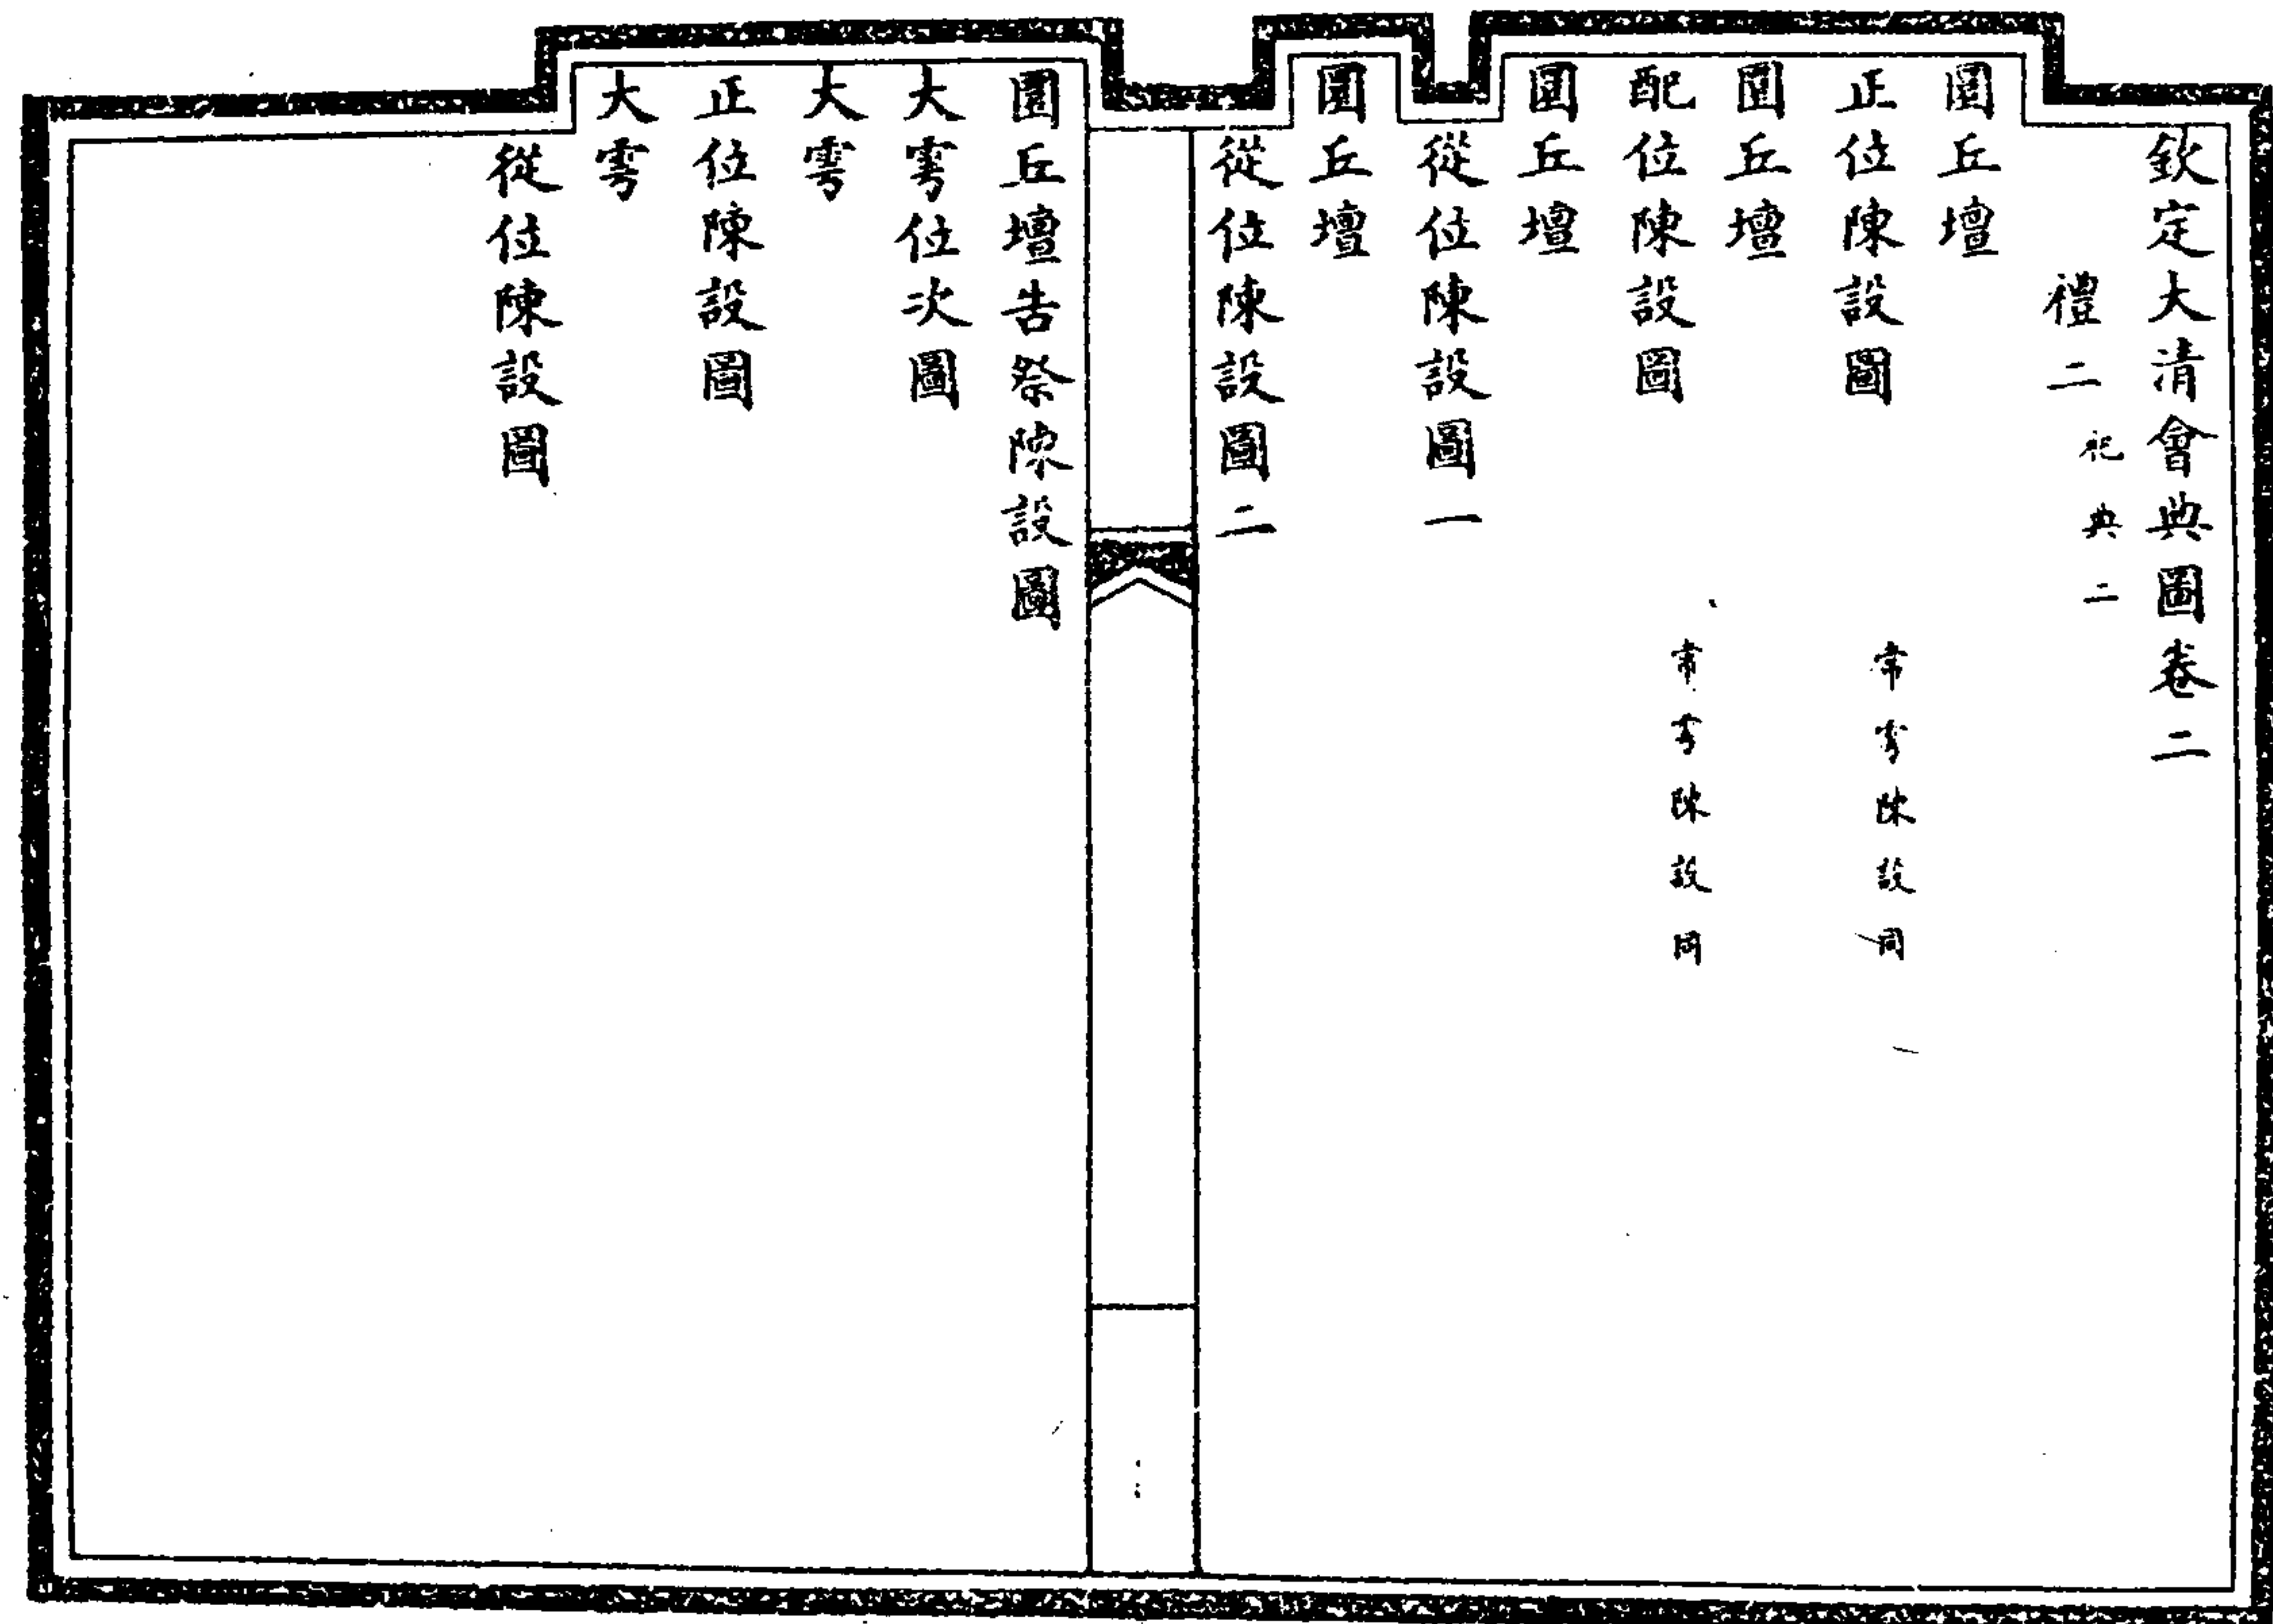 欽定大清會典圖卷二
禮二 祀典二
圜丘壇
正位陳設圖 常雩陳設同
圜丘壇
配位陳設圖 常雩陳設同
圜丘壇
從位陳設圖一
圜丘壇
從位陳設圖二
圜丘壇告祭陳設圖
大雩位次圖
大雩
正位陳設圖
大雩
從位陳設圖